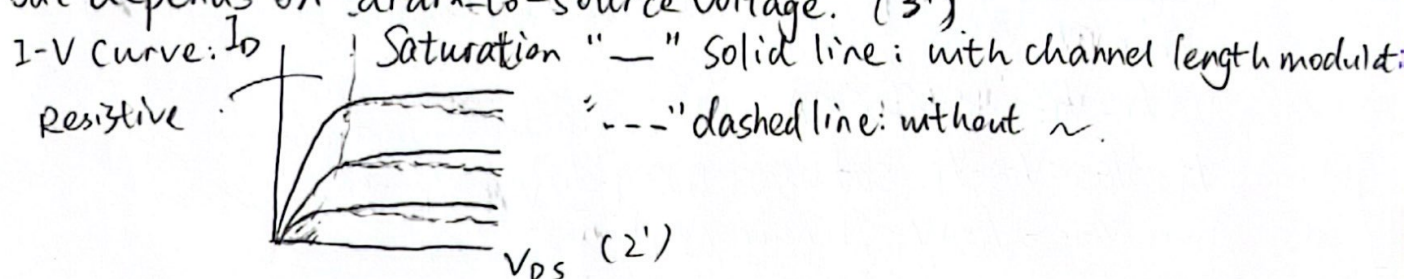 but depends on drain-to-source voltage. (3')
I-V Curve: I_D Saturation "—" Solid line: with channel length modulat
Resistive "---" dashed line: without ~.
V_DS (2')